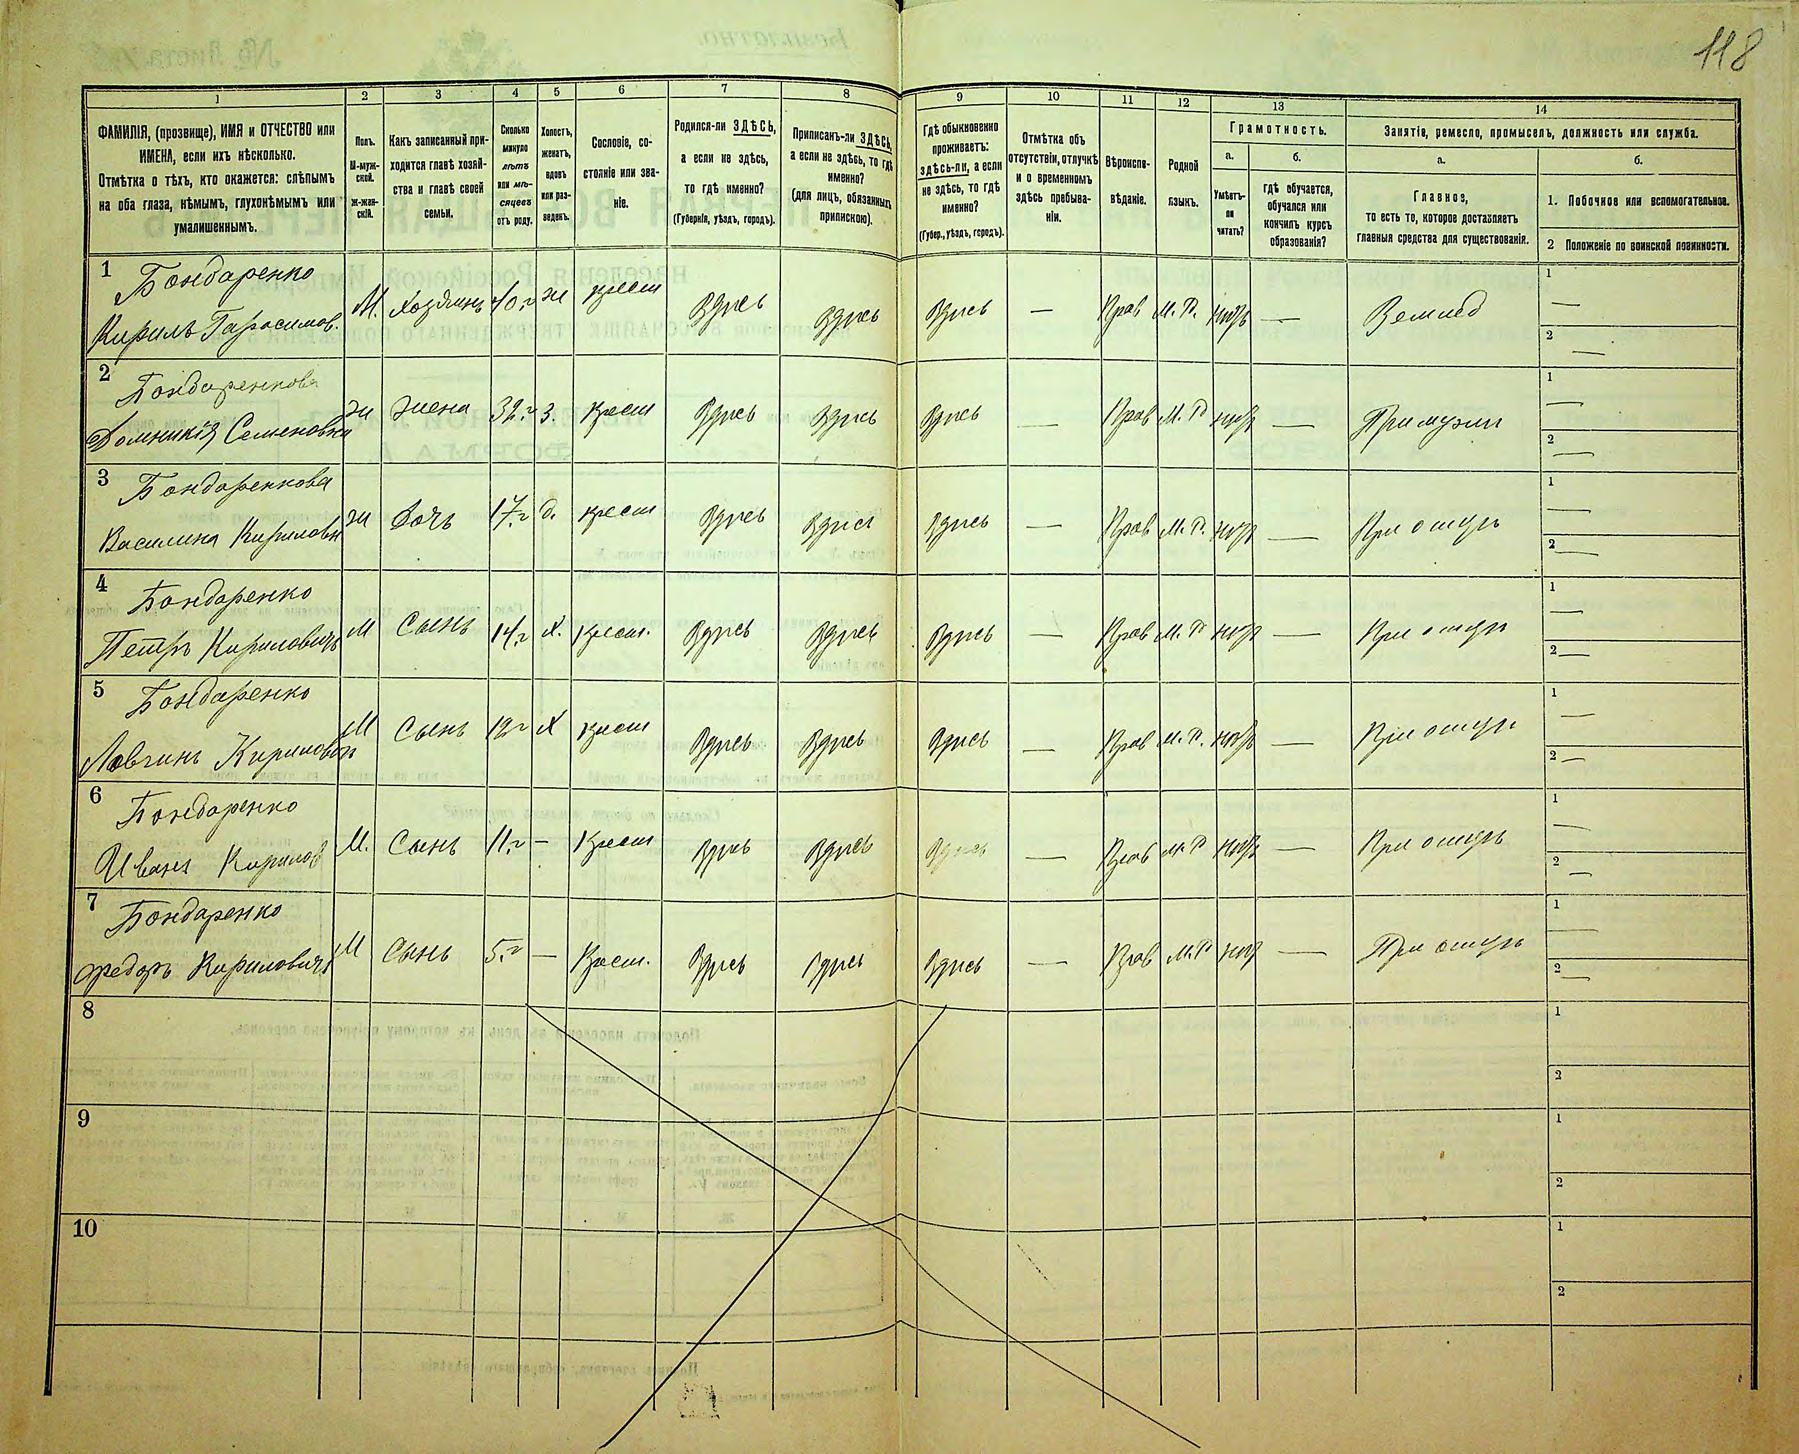 118
1 2 3 4 5 6 7 8 9 10 11 12 13 14
ФАМИЛІЯ, (прозвище), ИМЯ и ОТЧЕСТВО или
ИМЕНА, если ихъ нѣсколько.
Отмѣтка о тѣхъ, кто окажется: слѣпымъ
на оба глаза, нѣмымъ, глухонѣмымъ или
умалишеннымъ.
Полъ.
М-муж-
ской.
Ж-жен-
скій.
Какъ записанный при-
ходится главѣ хозяй-
ства и главѣ своей
семьи.
Сколько
минуло
лѣтъ
или мѣ-
сяцевъ
отъ роду.
Холостъ,
женатъ,
вдовъ
или раз-
веденъ.
Сословіе, со-
стояніе или зва-
ніе.
Родился-ли ЗДѢСЬ,
а если не здѣсь,
то гдѣ именно?
(Губернія, уѣздъ, городъ).
Приписанъ-ли ЗДѢСЬ,
а если не здѣсь, то гдѣ
именно?
(для лицъ, обязанныхъ
припискою).
Гдѣ обыкновенно
проживаетъ:
здѣсь-ли, а если
не здѣсь, то гдѣ
именно?
(Губер., уѣздъ, городъ).
Отмѣтка объ
отсутствіи, отлучкѣ
и о временномъ
здѣсь пребыва-
ніи.
Вѣроиспо-
вѣданіе.
Родной
языкъ.
Грамотность.
а.
Умѣетъ-
ли
читать?
б.
гдѣ обучается,
обучался или
кончилъ курсъ
образованія?
Занятіе, ремесло, промыселъ, должность или служба.
а.
Главное,
то есть то, которое доставляетъ
главныя средства для существованія.
б.
1. Побочное или вспомогательное.
2 Положеніе по воинской повинности.
1 Бондаренко
Кирилъ Гарасимов. М. Хозяинъ 40. г ж крест Здѣсь Здѣсь Здѣсь — Прав М. Р. нѣтъ — Землед 1 — 2 —
2 Бондаренкова
Домникія Семеновна ж жена 32. г з. крест Здѣсь Здѣсь Здѣсь — Прав М. Р нѣтъ — При мужи 1 — 2 —
3 Бондаренкова
Василина Кириловн ж дочь 17. г д. крест Здѣсь Здѣсь Здѣсь — Прав М. Р. нѣтъ — При отцѣ 1 — 2 —
4 Бондаренко
Петръ Кириловичъ М Сынъ 14. г Х. Крест. Здѣсь Здѣсь Здѣсь — Прав М. Р нѣтъ — При отцѣ 1 — 2 —
5 Бондаренко
Логвинъ Кирилович М Сынъ 12 г Х Крест Здѣсь Здѣсь Здѣсь — Прав М. Р. нѣтъ — При отцѣ 1 — 2 —
6 Бондаренко
Иванъ Кирилов М. Сынъ 11. г — Крест Здѣсь Здѣсь Здѣсь — Прав М. Р нѣтъ — При отцѣ 1 — 2 —
7 Бондаренко
Федоръ Кириловичъ М Сынъ 5. г — Крест. Здѣсь Здѣсь Здѣсь — Прав М. Р нѣт — При отцѣ 1 — 2 —
8 1 2
9 1 2
10 1 2